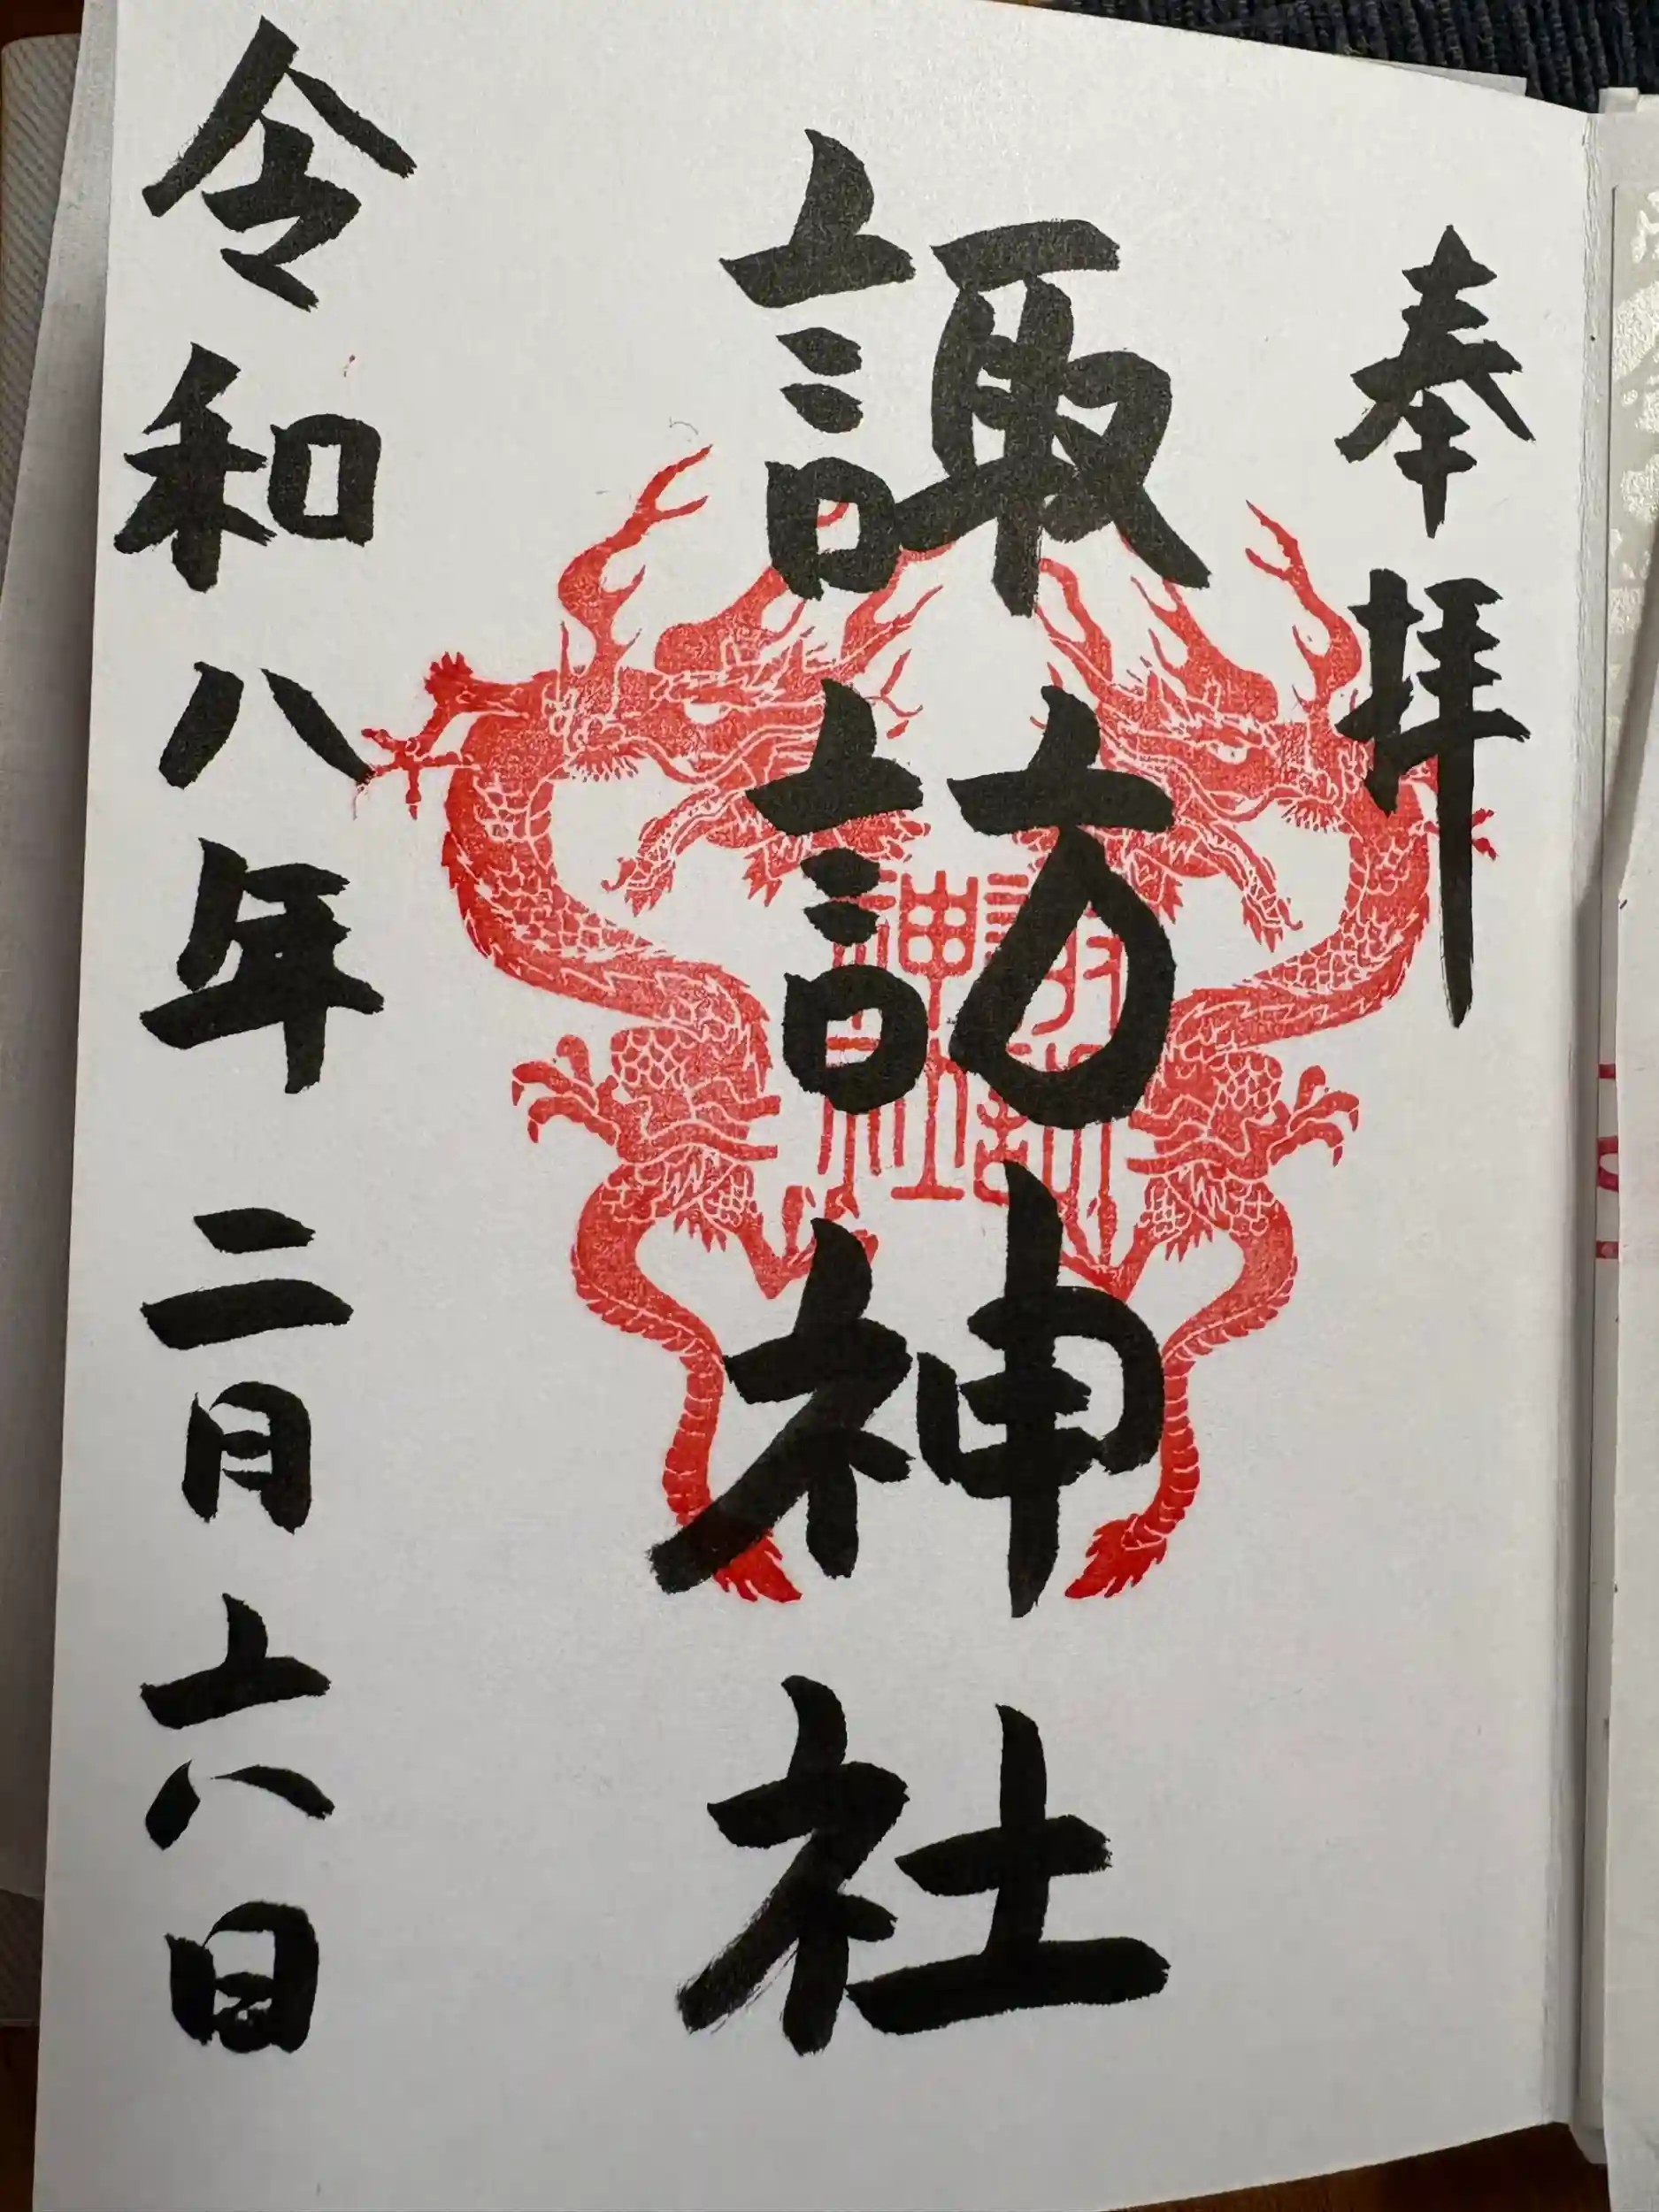 奉拝
諏訪神社
諏訪神社
令和八年二月六日